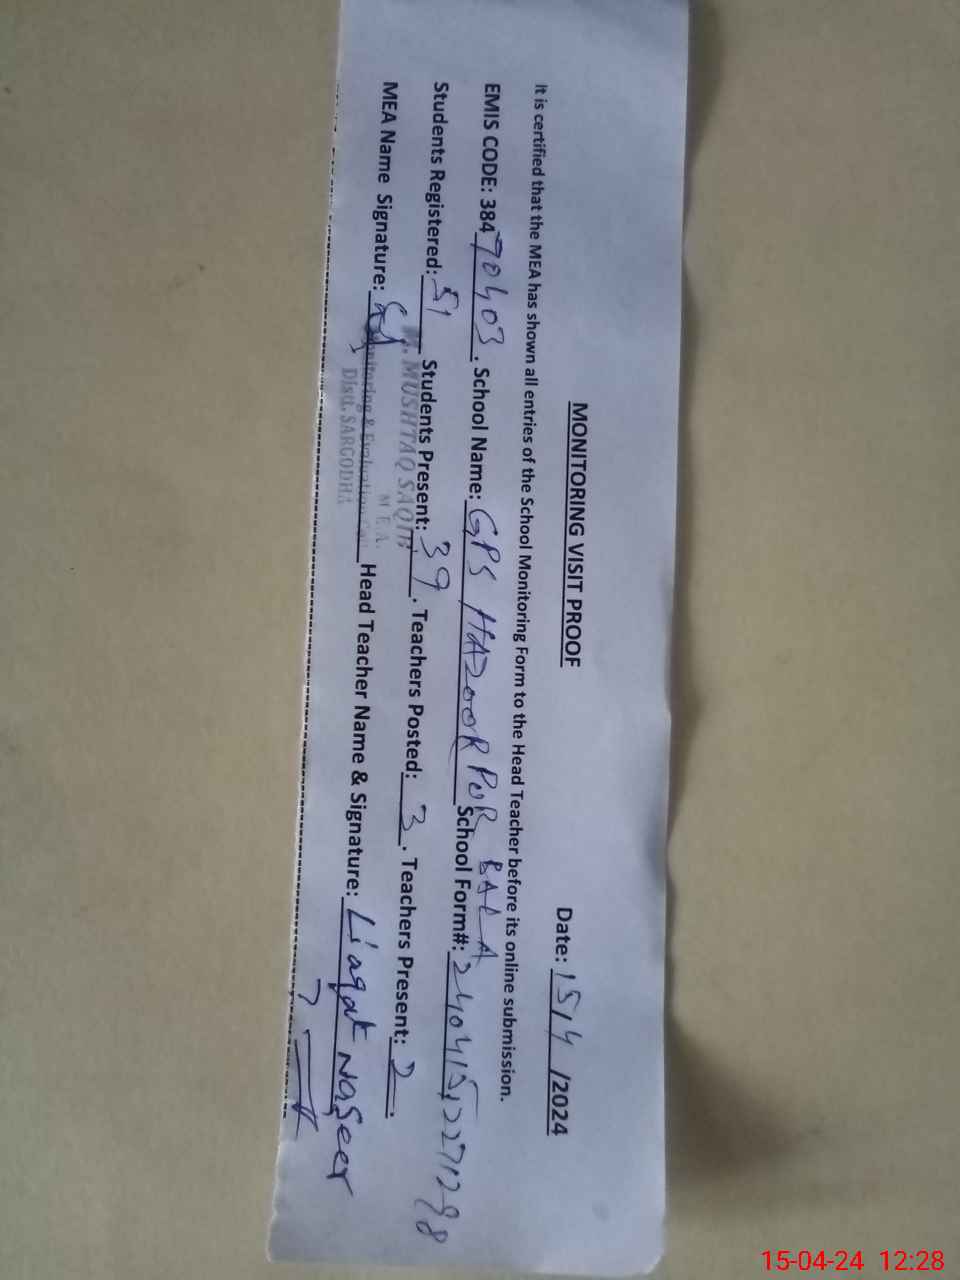 MONITORING VISIT PROOF
Date: 15/4/2024
It is certified that the MEA has shown all entries of the School Monitoring Form to the Head Teacher before its online submission.
EMIS CODE: 38470403. School Name: GPS HAZOOR PUR BALA School Form#:
Students Registered: 51 Students Present: 39. Teachers Posted: 3. Teachers Present: 2.
M. MUSHTAQ SAQIB
M.E.A.
MEA Name Signature: Head Teacher Name & Signature: Liaqat Naseer
Monitoring & Evaluation Cell
Distt. SARGODHA
15-04-24 12:28